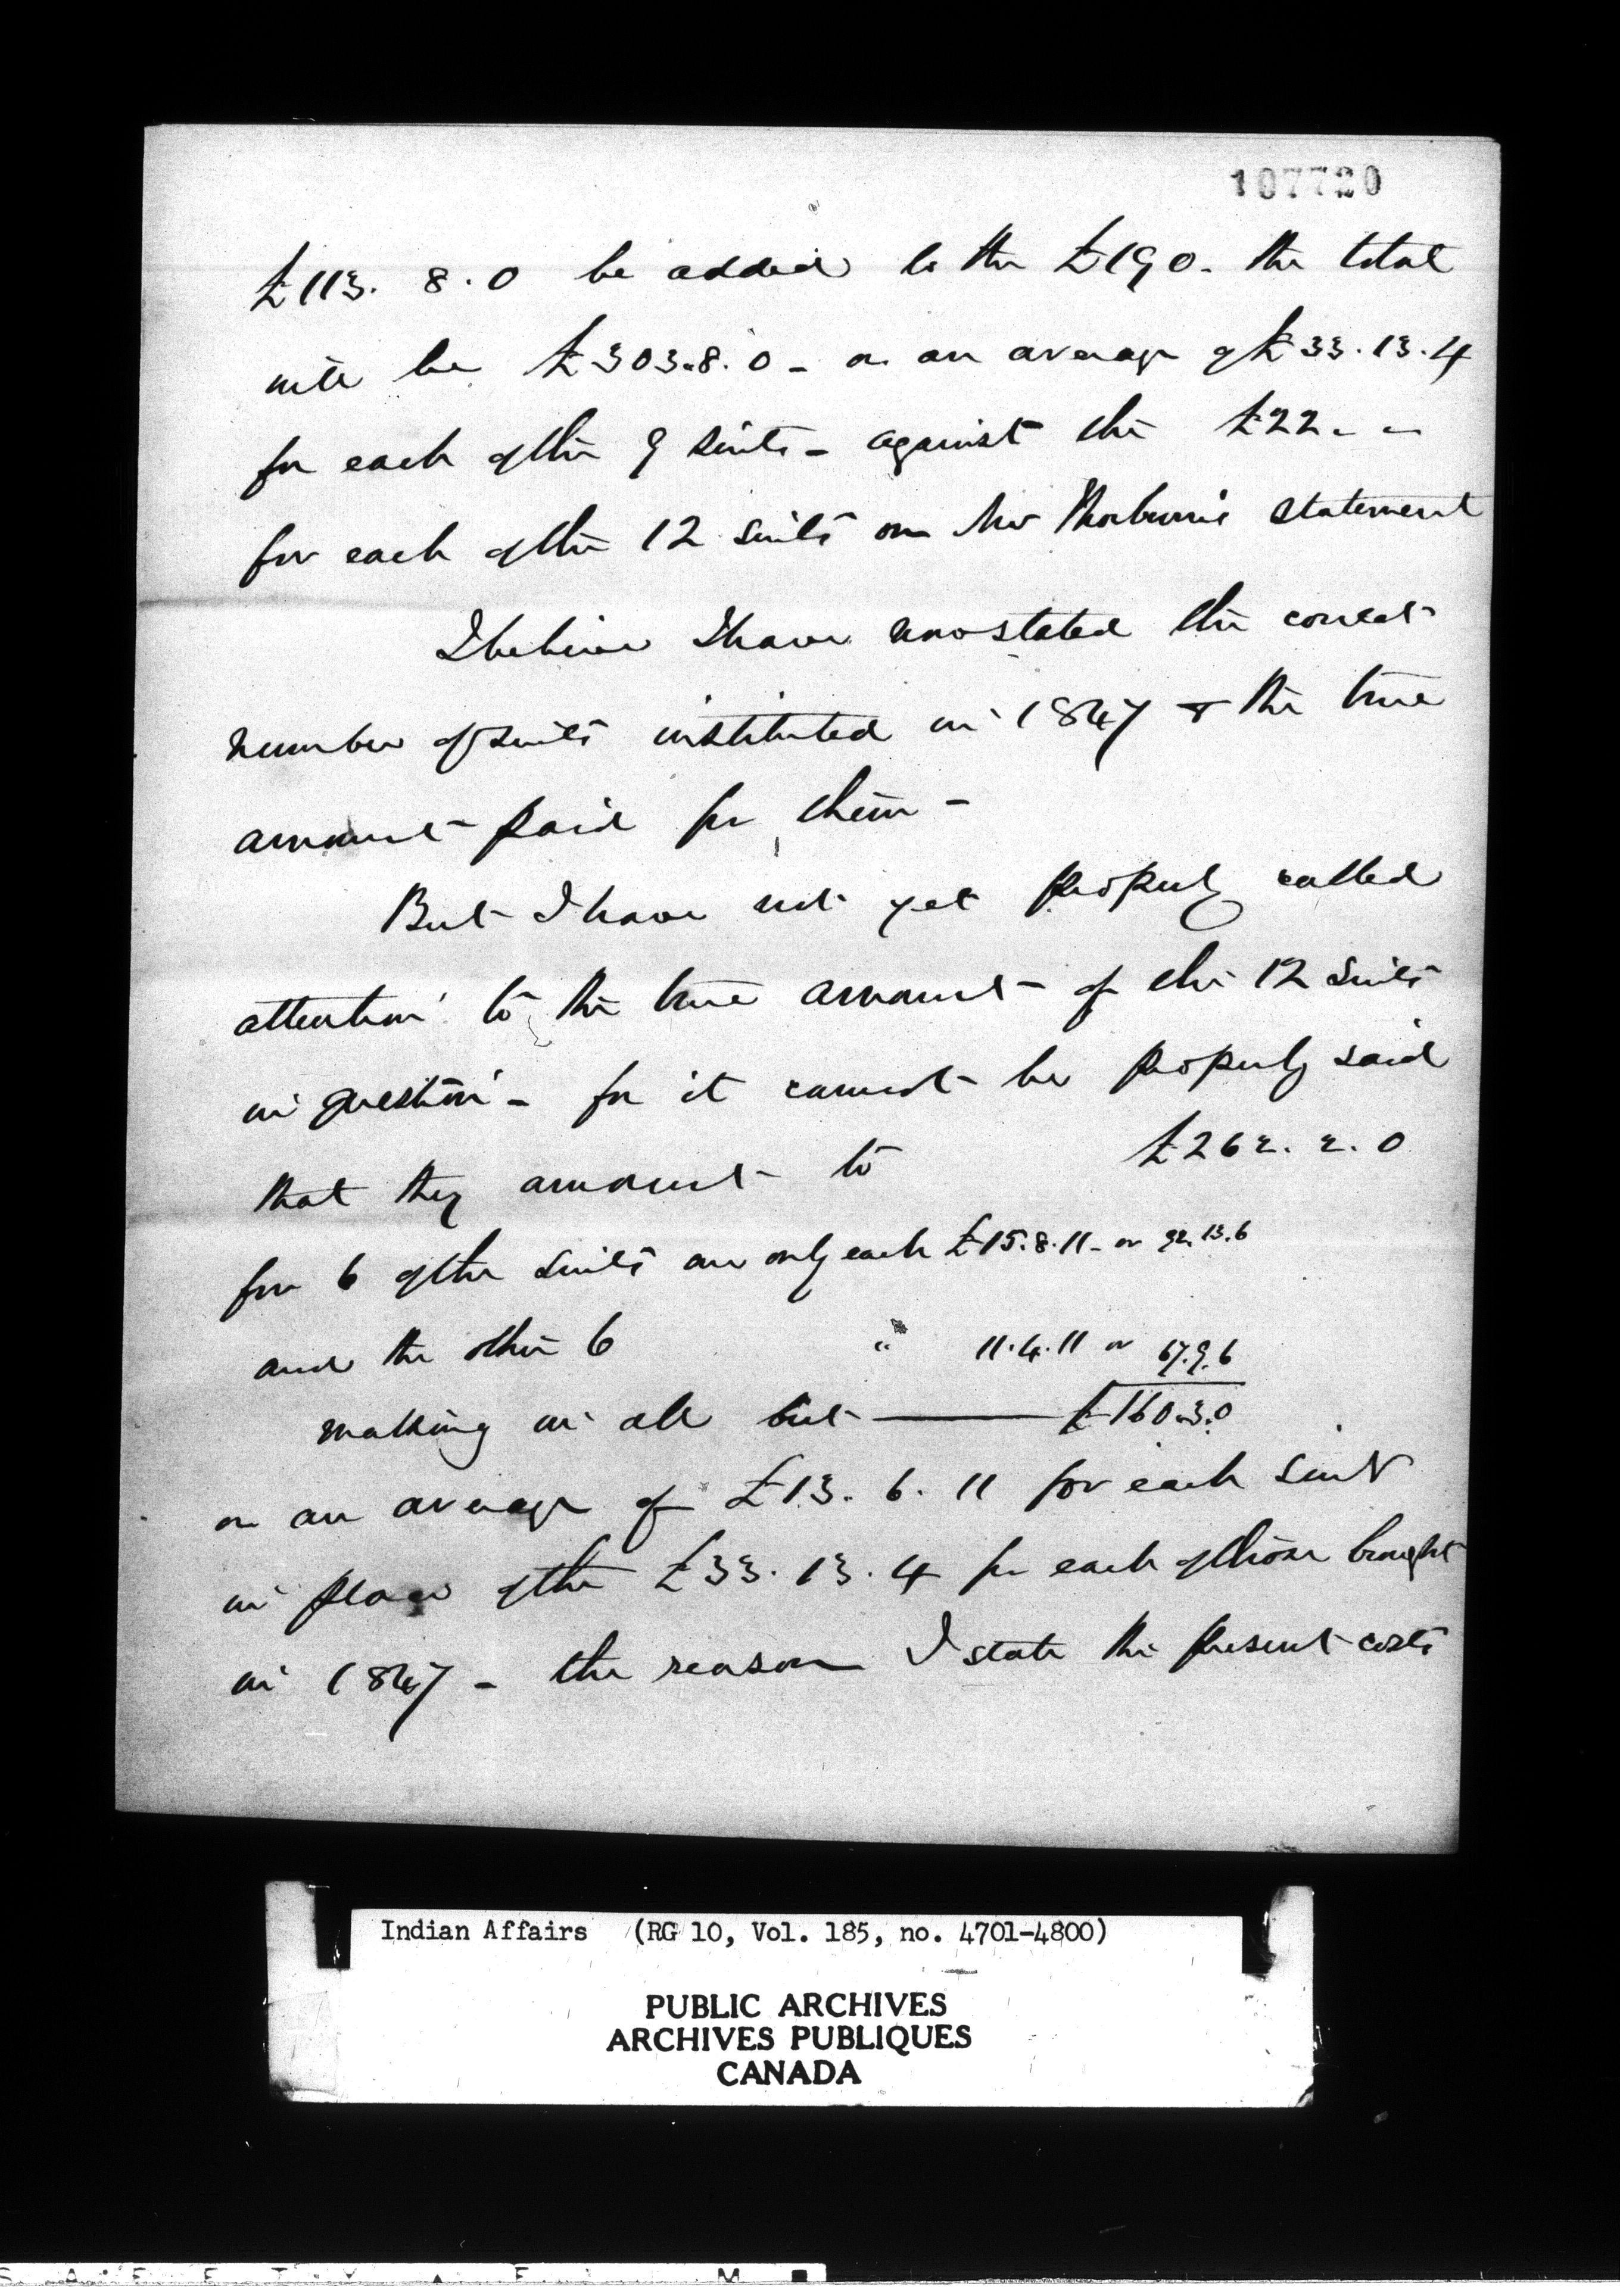 107720
£113. 8. 0 be added to the £190 - the total
will be £303.8.0 - or an average of £33.13.4
for each of the 9 suits - against the £22 - -
for each of the 12 suits on Mr Thorburn's statement
I believe I have now stated the correct
number of suits instituted in 1847 & the true
amount paid for them -
But I have not yet properly called
attention to the true amount of the 12 suits
in question - for it cannot be properly said
that they amount to £262. 2. 0
for 6 of the suits are only each £15.8.11 - or 92.13.6
and the other 6 " 11.4.11 or 67.9.6
making in all but £160.3.0
or an average of £13. 6. 11 for each suit
in place of the £33. 13. 4 for each of those brought
in 1847 - the reason I state the present costs
Indian Affairs (RG 10, Vol. 185, no. 4701-4800)
PUBLIC ARCHIVES
ARCHIVES PUBLIQUES
CANADA